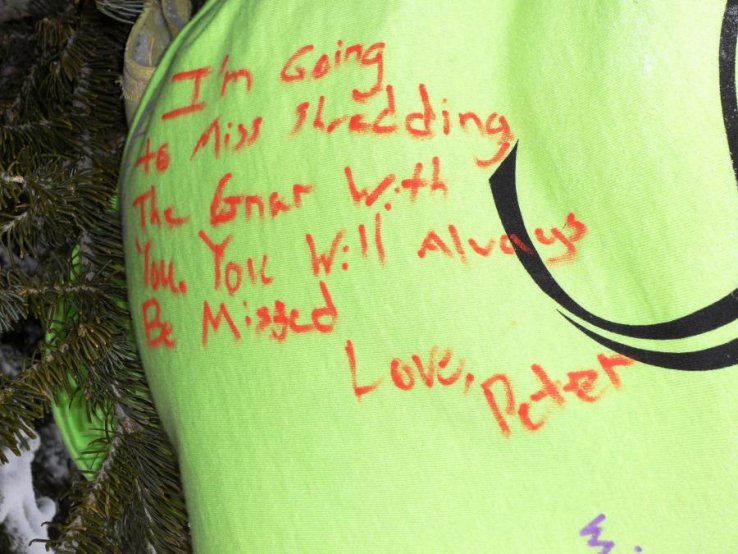 I'm Going
to Miss Shredding
The Gnar With
You. You Will Always
Be Missed
Love, Peter